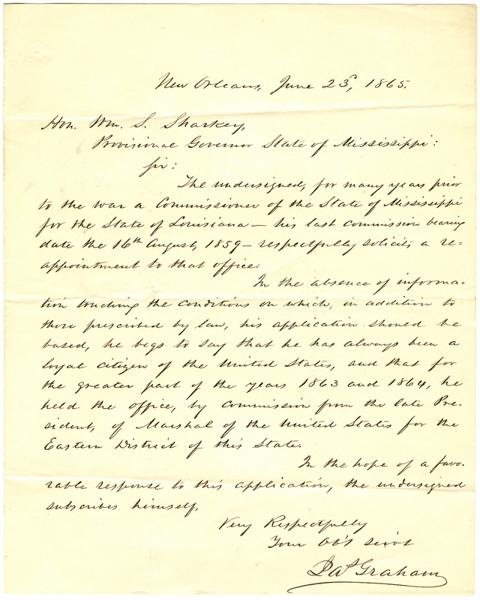 New Orleans, June 23d, 1865.
Hon. Wm. S. Sharkey,
Provisional Governor State of Mississippi:
Sir:
The undersigned, for many years prior
to the war a Commissioner of the State of Mississippi
for the State of Louisiana — his last commission bearing
date the 16th August, 1859 — respectfully solicits a re-
appointment to that office.
In the absence of informa-
tion touching the conditions on which, in addition to
those prescribed by law, his application should be
based, he begs to say that he has always been a
loyal citizen of the United States, and that for
the greater part of the years 1863 and 1864, he
held the office, by commission from the late Pre-
sident, of Marshal of the United States for the
Eastern District of this State.
In the hope of a favo-
rable response to this application, the undersigned
subscribes himself,
Very Respectfully
Your Ob't Serv't
Jas Graham